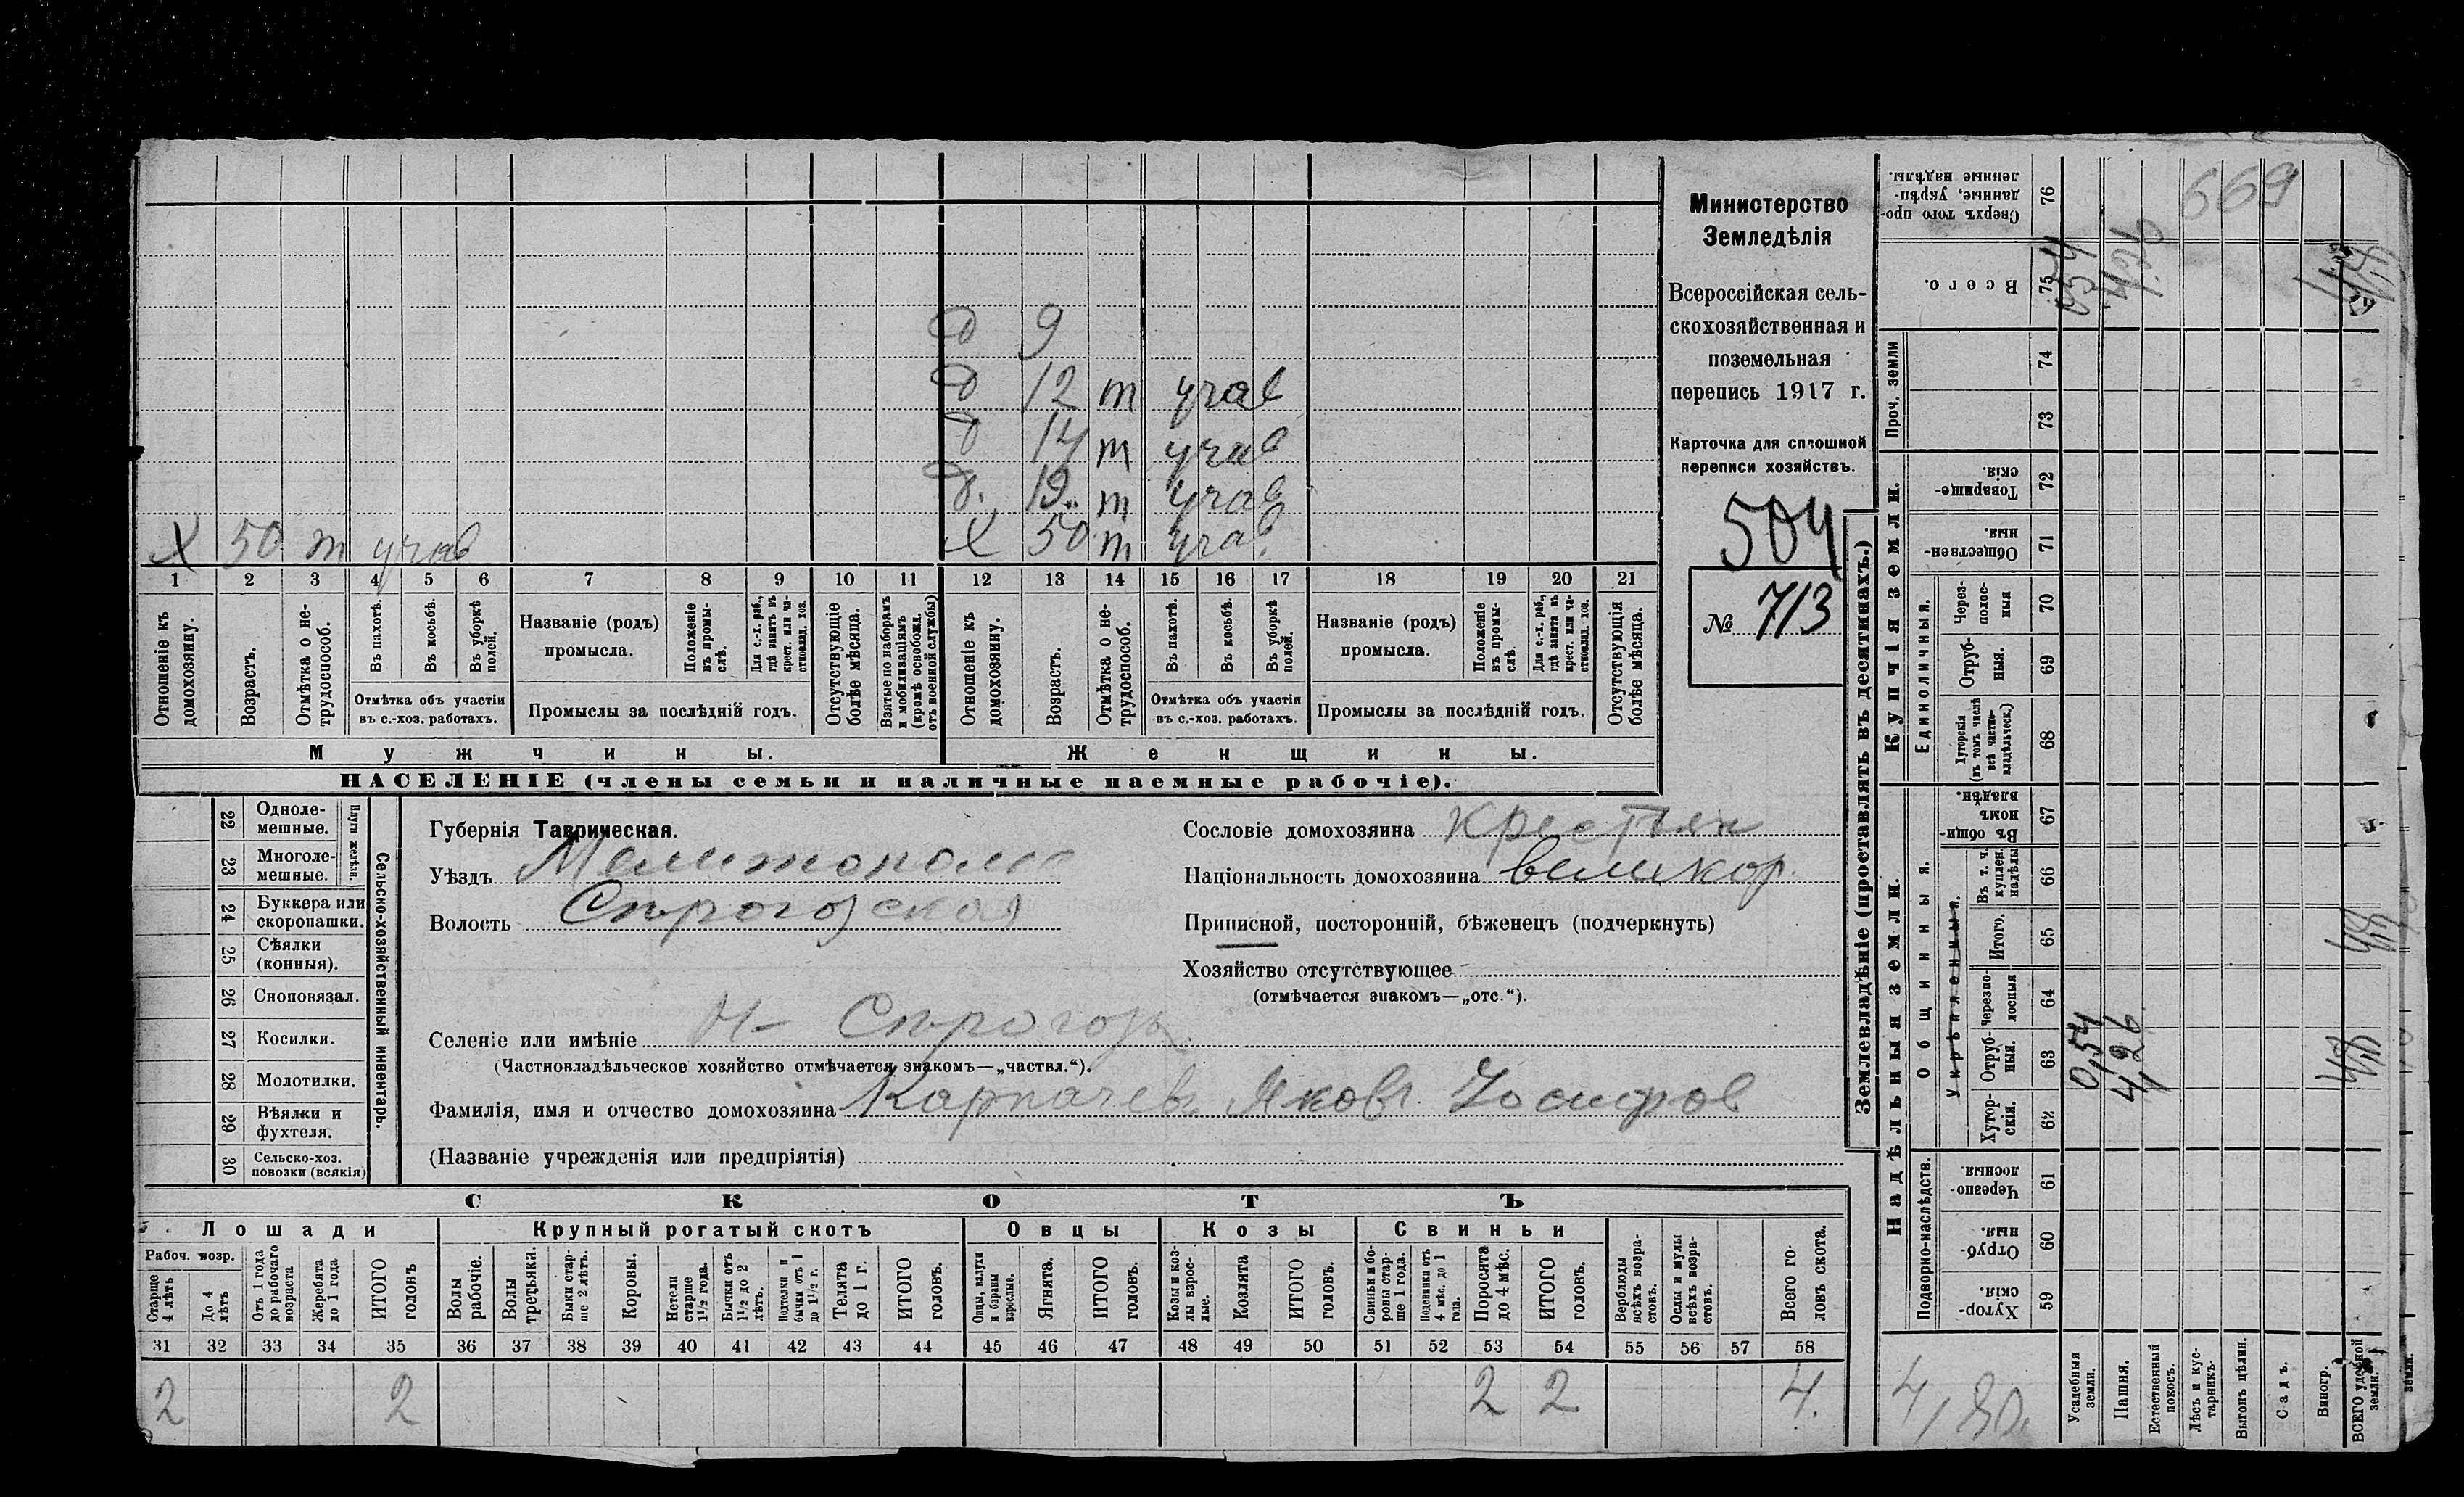 Министерство
Земледѣлія
Всероссійская сель-
скохозяйственная и
поземельная
перепись 1917 г.
Карточка для сплошной
переписи хозяйствъ.
504
№ 713
д 9
д 12 т учав
д 14 т учав
д. 19 т учав
Х 50 т учав Х 50 т учав
1 2 3 4 5 6 7 8 9 10 11 12 13 14 15 16 17 18 19 20 21
Отношеніе къ домохозяину.
Возрастъ.
Отмѣтка о не-трудоспособ.
Въ пахотѣ.
Въ косьбѣ.
Въ уборкѣ полей.
Отмѣтка объ участіи
въ с.-хоз. работахъ.
Названіе (родъ)
промысла.
Положеніе въ промы-слѣ.
Для с.-х. раб., гдѣ занятъ въ крест. или ча-стновлад. хоз.
Промыслы за послѣдній годъ.
Отсутствующіе болѣе мѣсяца.
Взятые по наборамъ и мобилизаціямъ (кромѣ освобожд. отъ военной службы)
Отношеніе къ домохозяину.
Возрастъ.
Отмѣтка о не-трудоспособ.
Въ пахотѣ.
Въ косьбѣ.
Въ уборкѣ полей.
Отмѣтка объ участіи
въ с.-хоз. работахъ.
Названіе (родъ)
промысла.
Положеніе въ промы-слѣ.
Для с.-х. раб., гдѣ занята въ крест. или ча-стновлад. хоз.
Промыслы за послѣдній годъ.
Отсутствующія болѣе мѣсяца.
Мужчины. Женщины.
НАСЕЛЕНІЕ (члены семьи и наличные наемные рабочіе).
22 Одноле-мешные.
23 Многоле-мешные.
Плуги желѣзн.
24 Буккера или скоропашки.
25 Сѣялки (конныя).
26 Сноповязал.
27 Косилки.
28 Молотилки.
29 Вѣялки и фухтеля.
30 Сельско-хоз. повозки (всякія)
Сельско-хозяйственный инвентарь.
Губернія Таврическая.
Уѣздъ Мелитополь
Волость Сѣрогозская
Сословіе домохозяина крестьян
Національность домохозяина великор.
Приписной, посторонній, бѣженецъ (подчеркнуть)
Хозяйство отсутствующее
(отмѣчается знакомъ—„отс.“).
Селеніе или имѣніе Н- Сѣрогозы
(Частновладѣльческое хозяйство отмѣчается знакомъ—„частвл.“).
Фамилія, имя и отчество домохозяина Карпачевъ Яковъ Іосифов
(Названіе учрежденія или предпріятія)
СКОТЪ
Лошади Крупный рогатый скотъ Овцы Козы Свиньи
Рабоч. возр.
Старше 4 лѣтъ
До 4 лѣтъ
Отъ 1 года до рабочаго возраста
Жеребята до 1 года
ИТОГО головъ
Волы рабочіе.
Волы третьяки.
Быки стар-ше 2 лѣтъ.
Коровы.
Нетели старше 1½ года.
Бычки отъ 1½ до 2 лѣтъ.
Подтелки и бычки отъ 1 до 1½ г.
Телята до 1 г.
ИТОГО головъ.
Овцы, валухи и бараны взрослые.
Ягнята.
ИТОГО головъ.
Козы и коз-лы взрос-лые.
Козлята
ИТОГО головъ.
Свиньи и бо-ровы стар-ше 1 года.
Подсвинки отъ 4 мѣс. до 1 года.
Поросята до 4 мѣс.
ИТОГО головъ.
Верблюды всѣхъ возра-стовъ.
Ослы и мулы всѣхъ возра-стовъ.
Всего го-ловъ скота.
31 32 33 34 35 36 37 38 39 40 41 42 43 44 45 46 47 48 49 50 51 52 53 54 55 56 57 58
2 2 2 2 4.
Землевладѣніе (проставлять въ десятинахъ.)
Сверхъ того про-данные, укрѣп-ленные надѣлы. 76
669
Всего. 75
0,54
4,26
Проч. земли 74 73
Купчія земли.
Товарище-скія. 72
Обществен-ныя. 71
Единоличныя.
Через-полос-ныя 70
Отруб-ныя. 69
Хуторскія (въ томъ числѣ всѣ частно-владѣльческ.) 68
Надѣльныя земли.
Общинныя.
Въ общин-номъ владѣн. 67
Укрѣпленныя.
Въ т. ч. куплен. надѣлы 66
Итого. 65
Черезпо-лосныя 64
Отруб-ныя. 63
0,54
4,26
Хутор-скія. 62
Подворно-наслѣдств.
Черезпо-лосныя 61
Отруб-ныя. 60
Хутор-скія. 59
4,80.
Усадебныя земли.
Пашня.
Естественный покосъ.
Лѣсъ и кус-тарникъ.
Выгонъ цѣлин.
Садъ.
Виногр.
ВСЕГО удобной земли.
земли.